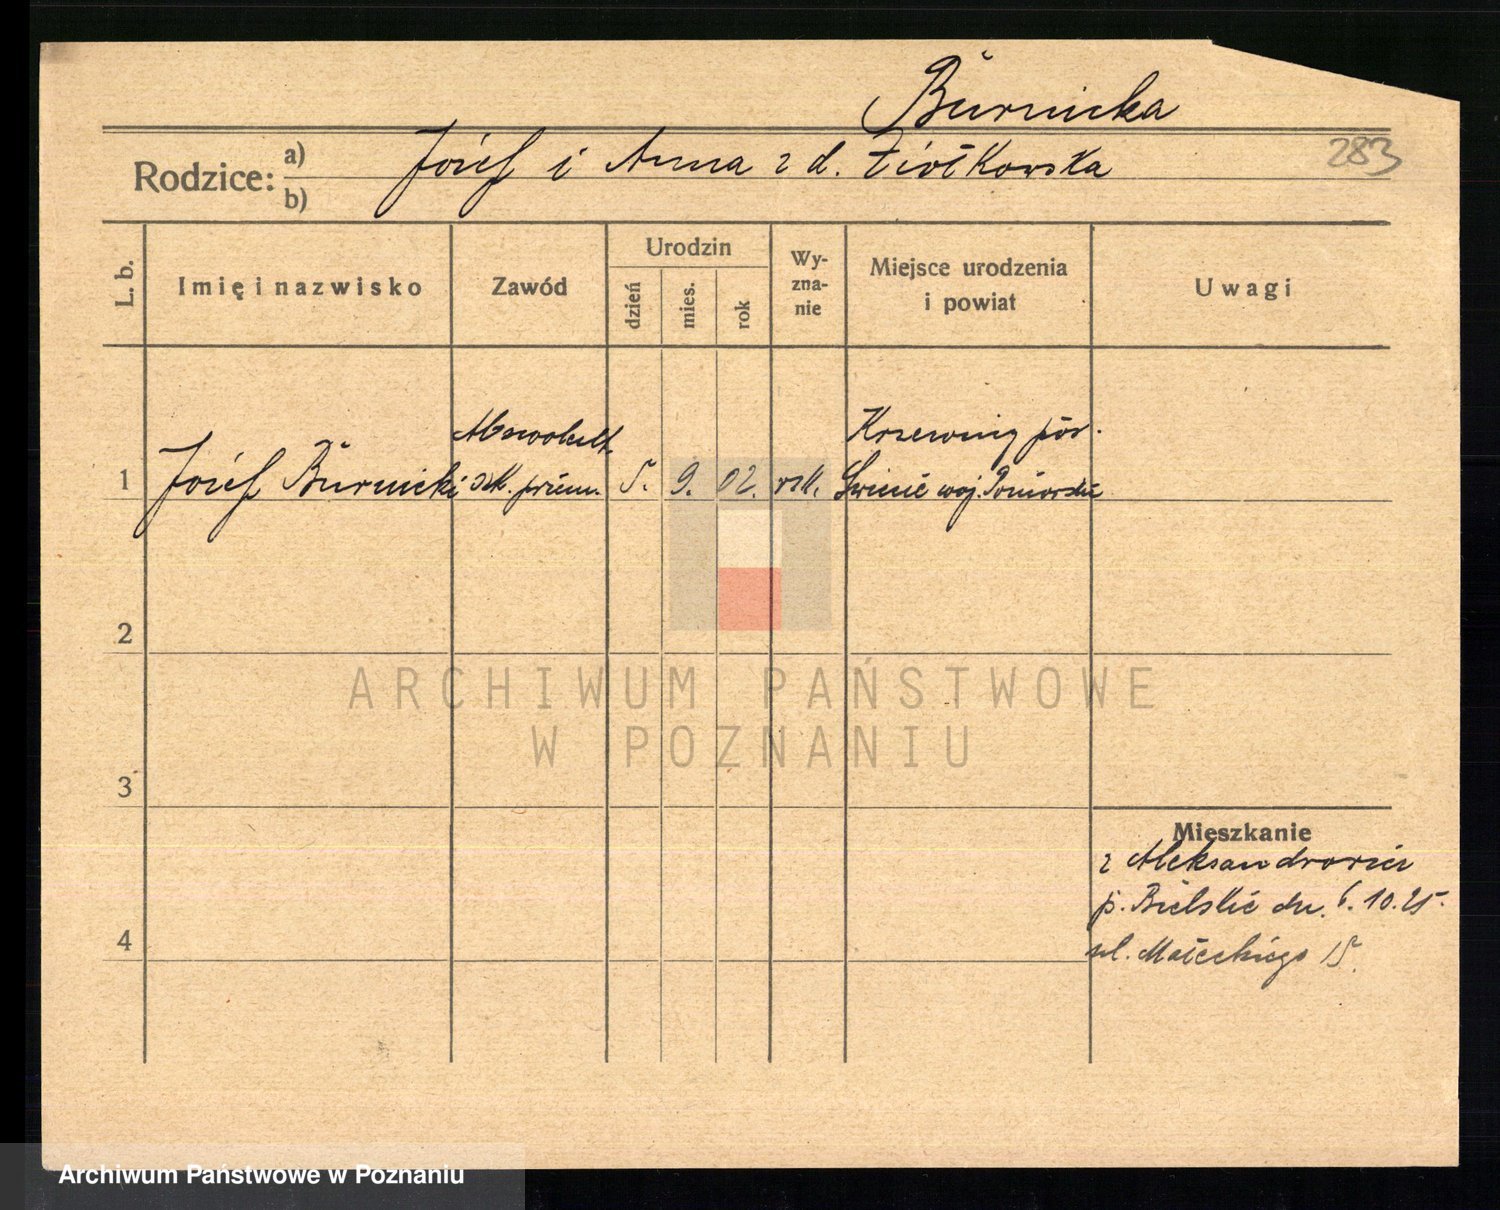 Burnicka
283
Rodzice: a) Józef i Anna z d. Ziółkowska
b)
L. b.
Imię i nazwisko
Zawód
Urodzin
dzień
mies.
rok
Wy-
zna-
nie
Miejsce urodzenia
i powiat
Uwagi
1
Józef Burnicki
Abswolwt.
szk. przem.
5.
9.
02.
rzk.
pow.
Świecie woj. Pomorskie
2
3
4
Mieszkanie
z Aleksandrowic
p. Bielskie dn. 6.10.25.
ul. Małeckiego 15.
ARCHIWUM PAŃSTWOWE
W POZNANIU
Archiwum Państwowe w Poznaniu